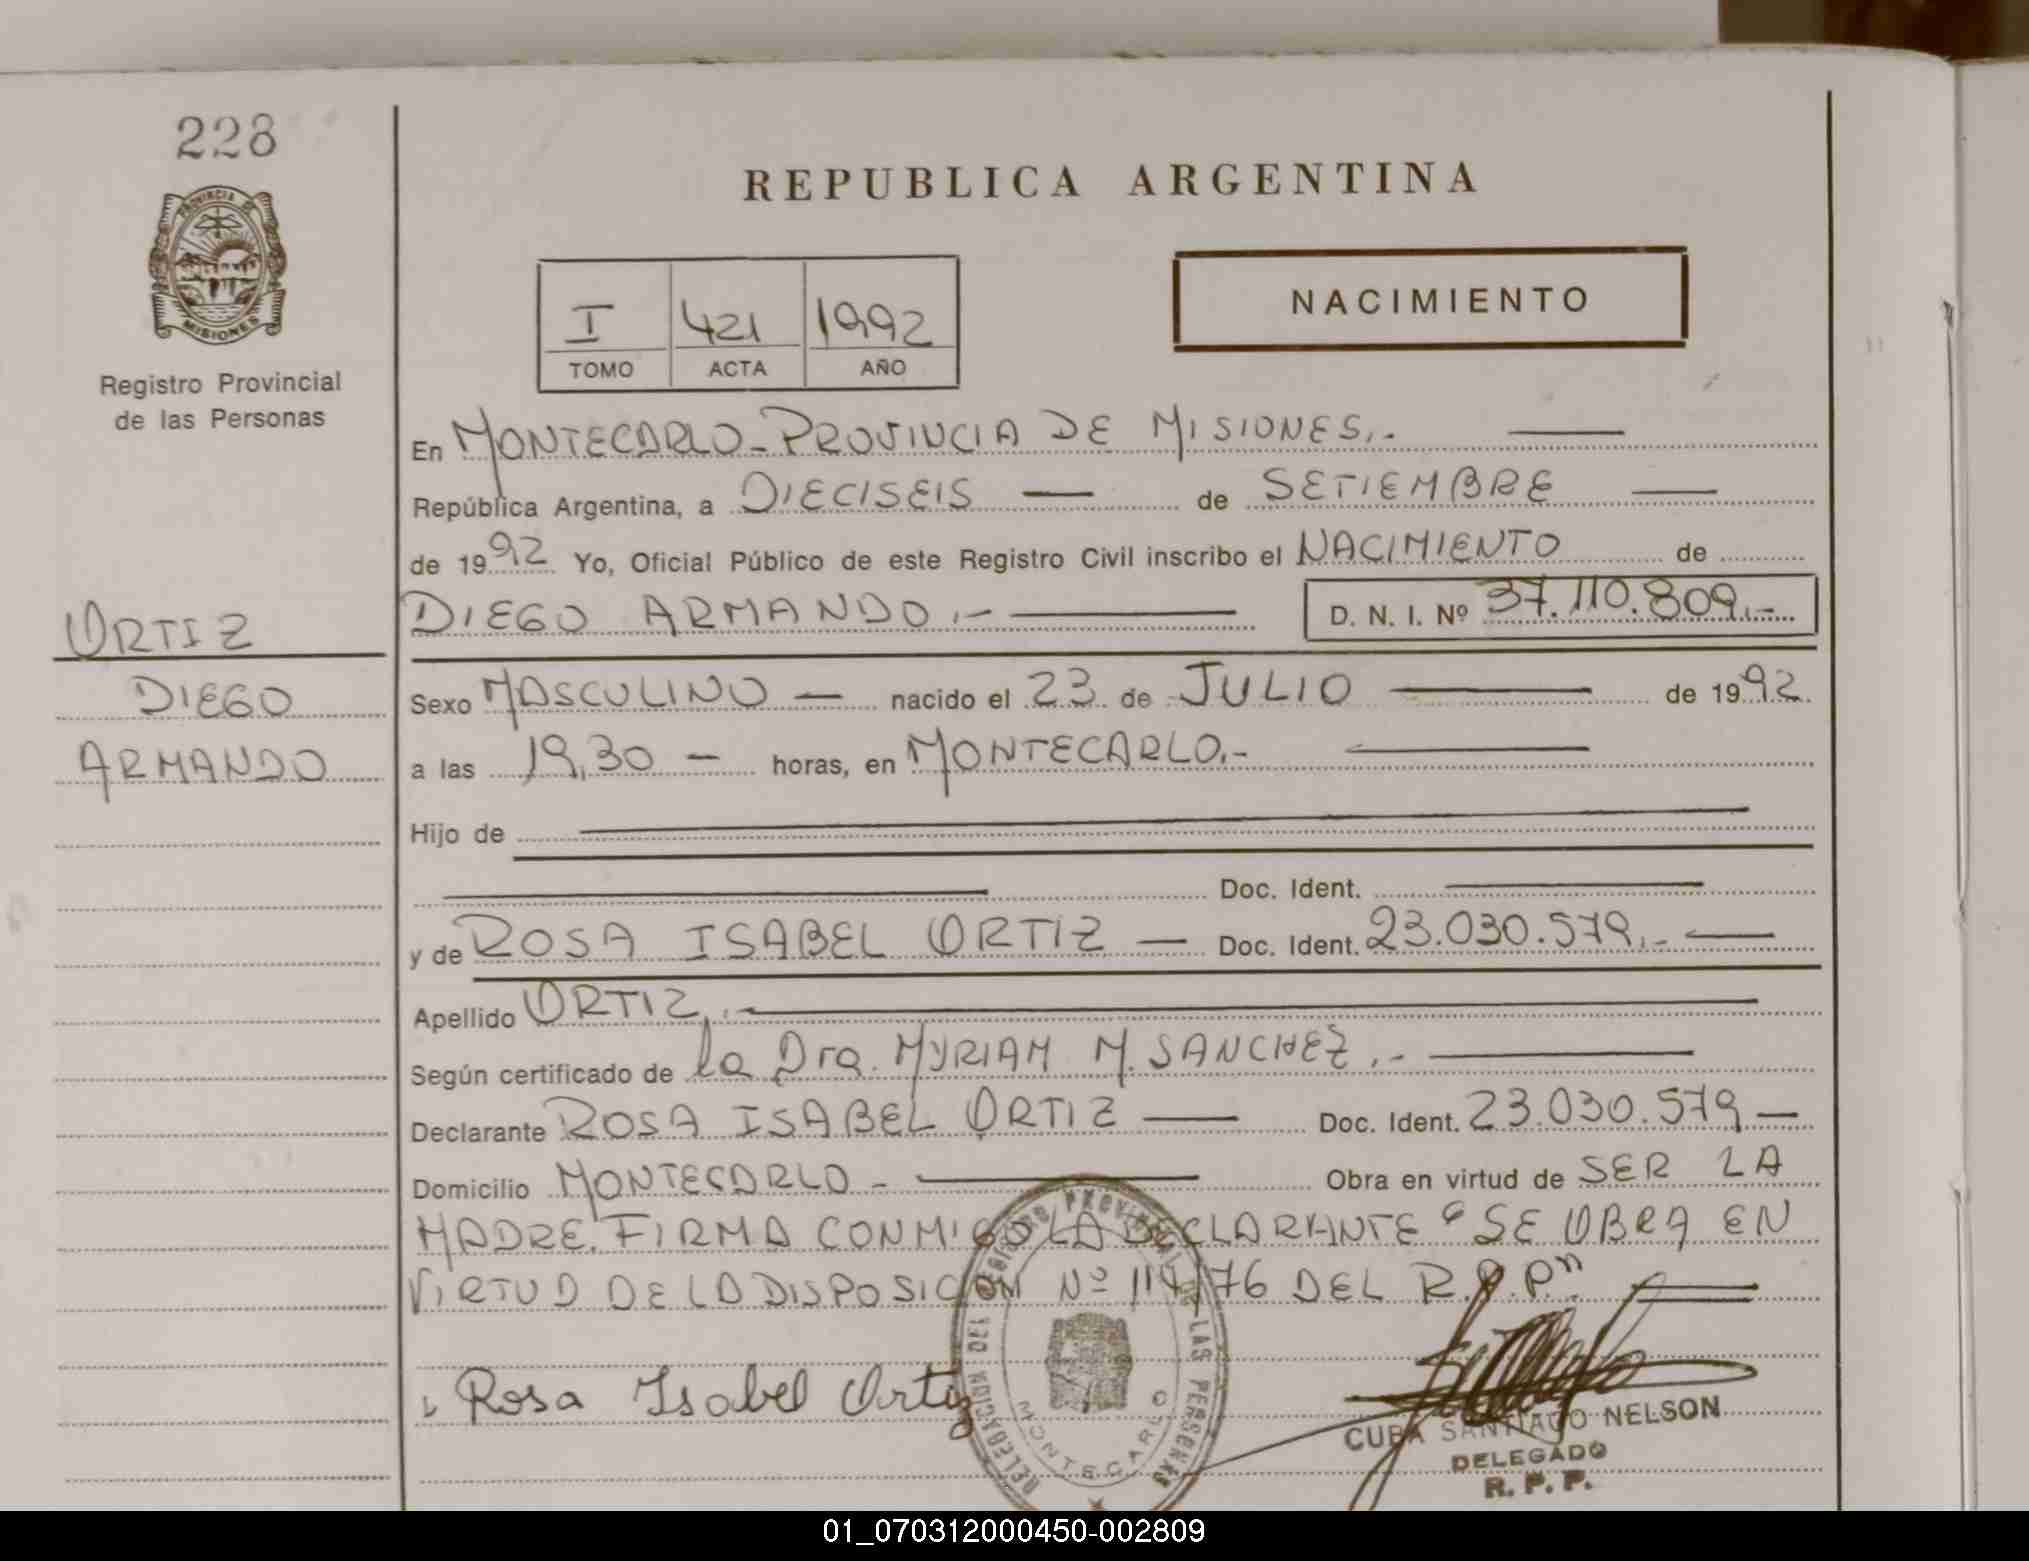 228
PROVINCIA DE
MISIONES
Registro Provincial
de las Personas
REPUBLICA ARGENTINA
I 421 1992
TOMO ACTA AÑO
NACIMIENTO
En MONTECARLO - PROVINCIA DE MISIONES,.-
República Argentina, a DIECISEIS — de SETIEMBRE —
de 1992 Yo, Oficial Público de este Registro Civil inscribo el NACIMIENTO de
DIEGO ARMANDO.- — D. N. I. Nº 37.110.809.-
ORTIZ
DIEGO
ARMANDO
Sexo MASCULINO — nacido el 23 de JULIO — de 1992.
a las 19,30 — horas, en MONTECARLO.- —
Hijo de —
— Doc. Ident. —
y de ROSA ISABEL ORTIZ — Doc. Ident. 23.030.579.- —
Apellido ORTIZ,.- —
Según certificado de la Dra. MYRIAM M. SANCHEZ.- —
Declarante ROSA ISABEL ORTIZ — Doc. Ident. 23.030.579 —
Domicilio MONTECARLO - — Obra en virtud de SER LA
MADRE. FIRMA CONMIGO LA DECLARANTE " SE OBRA EN
VIRTUD DE LA DISPOSICION Nº 114/76 DEL R.P.P."
Rosa Isabel Ortiz
DELEGACION DEL REGISTRO PROVINCIAL DE LAS PERSONAS
MONTECARLO
CUBA SANTIAGO NELSON
DELEGADO
R. P. P.
01_070312000450-002809